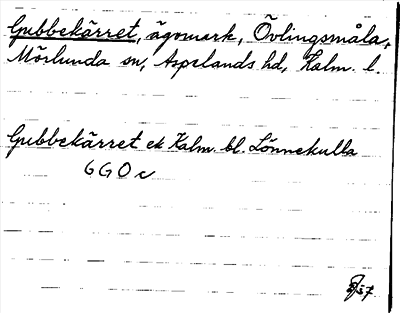 Gubbekärret, ägomark, Övlingsmåla,
Mörlunda sn, Aspelands hd, Kalm. l.
Gubbekärret ek Kalm. bl. Lönnekulla
6 G O c
57